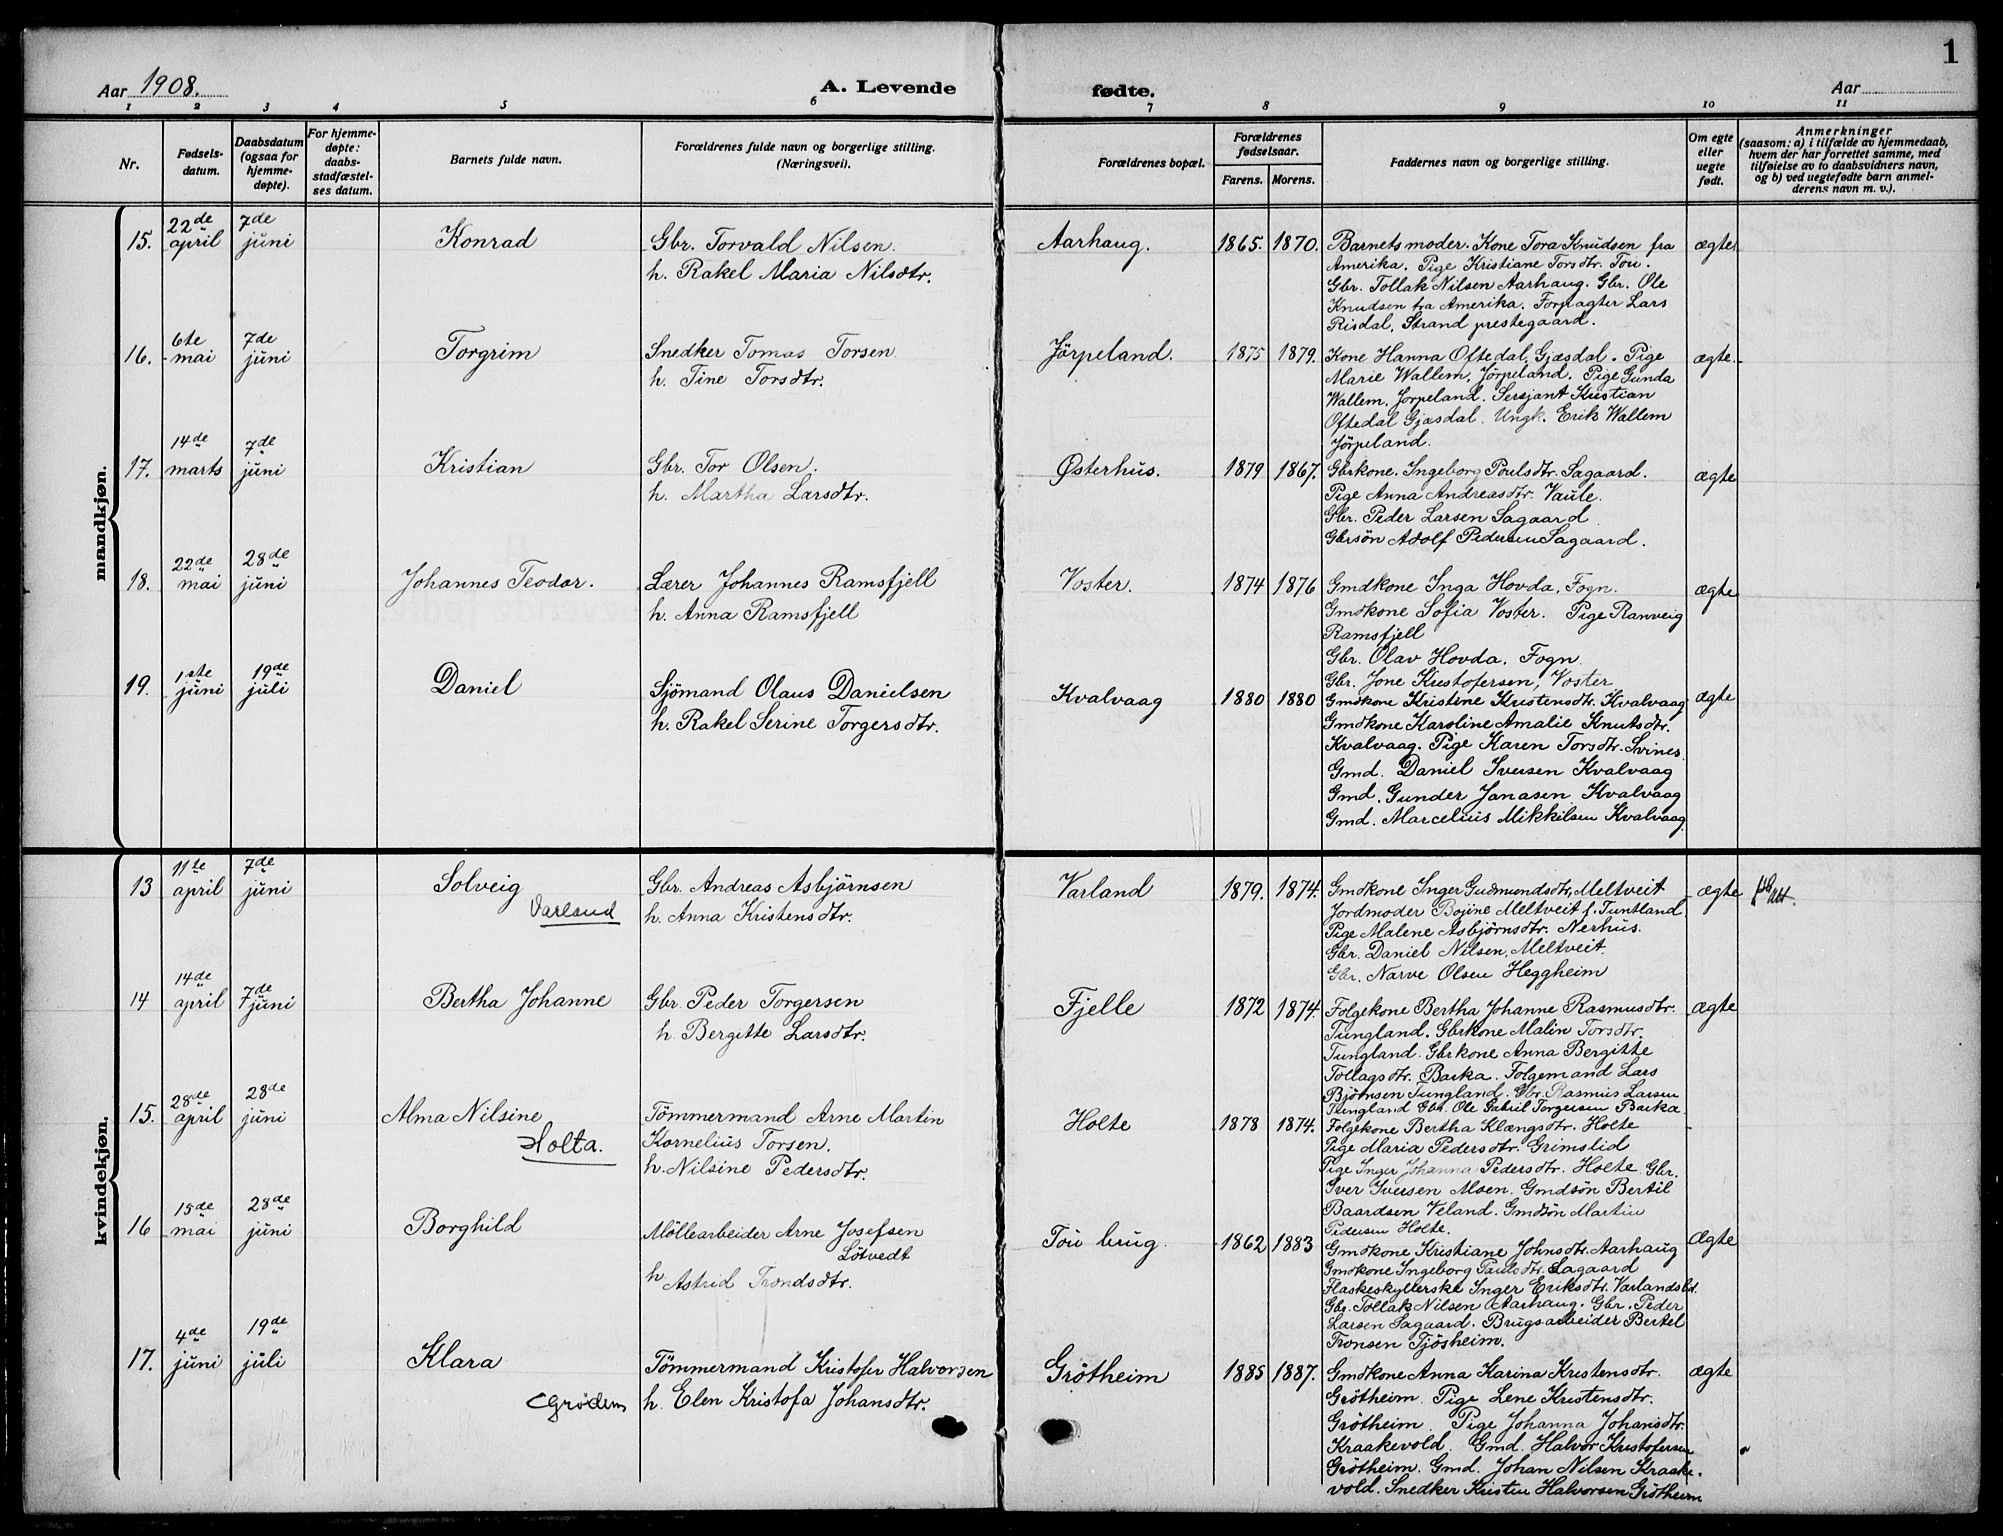 1
Aar 1908.
A. Levende fødte.
Aar
1 2 3 4 5 6 7 8 9 10 11
Nr.
Fødsels-
datum.
Daabsdatum
(ogsaa for
hjemme-
døpte).
For hjemme-
døpte:
daabs-
stadfæstel-
ses datum.
Barnets fulde navn.
Forældrenes fulde navn og borgerlige stilling.
(Næringsvei).
Forældrenes bopæl.
Forældrenes
fødselsaar.
Farens. Morens.
Faddernes navn og borgerlige stilling.
Om egte
eller
uegte
født.
Anmerkninger
(saasom: a) i tilfælde av hjemmedaab,
hvem der har forrettet samme, med
tilføielse av to daabsvidners navn,
og b) ved uegtefødte barn anmel-
derens navn m. v.).
mandkjøn.
15.
22de
april
7de
juni
Konrad
Gbr. Torvald Nilsen.
h. Rakel Maria Nilsdtr.
Aarhaug.
1865. 1870.
Barnets moder. Kone Tora Knudsen fra
Amerika. Pige Kristiane Torsdtr. Tou.
Gbr. Tollak Nilsen Aarhaug. Gbr. Ole
Knudsen fra Amerika. Forpagter Lars
Risdal, Strand prestegaard.
ægte.
16.
6te
mai
7de
juni
Torgrim
Snedker Tomas Torsen
h. Tine Torsdtr.
Jörpeland.
1875 1879.
Kone Hanna Oftedal, Gjæsdal. Pige
Marie Wallem, Jörpeland. Pige Gunda
Wallem, Jörpeland. Sersjant Kristian
Oftedal Gjæsdal. Ungk. Erik Wallem
Jörpeland.
ægte.
17.
14de
marts
7de
juni
Kristian
Gbr. Tor Olsen.
h. Martha Larsdtr.
Østerhus.
1879 1867.
Gbrkone. Ingeborg Poulsdtr. Sagaard.
Pige Anna Andreasdtr. Vaule.
Gbr. Peder Larsen Sagaard
Gbrsön Adolf Pedersen Sagaard.
ægte
18.
22de
mai
28de
juni
Johannes Teodor.
Lærer Johannes Ramsfjell
h. Anna Ramsfjell
Voster.
1874 1876
Gmdkone Inga Hovda, Fogn.
Gmdkone Sofia Voster. Pige Ranveig
Ramsfjell
Gbr. Olav Hovda, Fogn.
Gbr. Jone Kristofersen, Voster
ægte
19.
1ste
juni
19de
juli
Daniel
Sjömand Olaus Danielsen
h. Rakel Serine Torgersdtr.
Kvalvaag
1880 1880
Gmdkone Kristine Kristensdtr. Kvalvaag
Gmdkone Karoline Amalie Knutsdtr.
Kvalvaag. Pige Karen Torsdtr. Svines
Gmd. Daniel Iversen Kvalvaag
Gmd. Gunder Janasen Kvalvaag
Gmd. Marcelius Mikkilsen Kvalvaag
ægte
kvindekjøn.
13
11te
april
7de
juni
Solveig
Varland
Gbr. Andreas Asbjørnsen
h. Anna Kristensdtr.
Varland
1879. 1874.
Gmdkone Inger Gudmundsdtr, Meltveit
Jordmoder Bojine Meltveit f. Tuntland
Pige Malene Asbjørnsdtr. Nerhus.
Gbr. Daniel Nilsen, Meltveit.
Gbr. Narve Olsen Heggheim
ægte
14
14de
april
7de
juni
Bertha Johanne
Gbr. Peder Torgersen
h. Bergitte Larsdtr.
Fjelle
1872 1874.
Folgekone Bertha Johanne Rasmusdtr.
Tungland. Gbrkone Malin Torsdtr.
Tungland. Gbrkone Anna Bergitte
Tollagsdtr. Barka. Folgemand Lars
Björnsen Tungland. Gbr. Rasmus Larsen
Tungland Gbr. Ole Gabril Torgersen Barka.
ægte
15.
28de
april
28de
juni
Alma Nilsine
Holta.
Tömmermand Arne Martin
Kornelius Torsen.
h. Nilsine Pedersdtr.
Holte
1878 1874.
Folgekone Bertha Klængsdtr. Holte
Pige Maria Pedersdtr. Grimslid
Pige Inger Johanna Pedersdtr. Holte. Gbr.
Iver Iversen Moen. Gmdsön Bertil
Baardsen Veland. Gmdsön Martin
Pedersen Holte.
16
15de
mai
28de
juni
Borghild
Möllearbeider Arne Josefsen
Lötvedt
h Astrid Trondsdtr.
Tou brug.
1862 1883
Gmdkone Kristiane Johnsdtr. Aarhaug
Gmdkone Ingeborg Paulsdtr. Sagaard
Flaskeskyllerske Inger Eriksdtr. Varlandsbd.
Gbr. Tollak Nilsen Aarhaug. Gbr. Peder
Larsen Sagaard. Brugsarbeider Bertel
Tronsen Tjösheim.
Ægte
17.
4de
juni
19de
juli
Klara
Grödem
Tömmermand Kristofer Halvorsen
h. Elen Kristofa Johansdtr.
Grötheim
1885 1887.
Gmdkone Anna Karina Kristensdtr.
Grötheim. Pige Lene Kristensdtr.
Grötheim. Pige Johanna Johansdtr.
Kraakevold. Gmd. Halvor Kristofersen
Grötheim. Gmd. Johan Nilsen Kraake-
vold. Snedker Kristen Halvorsen Grötheim
ægte